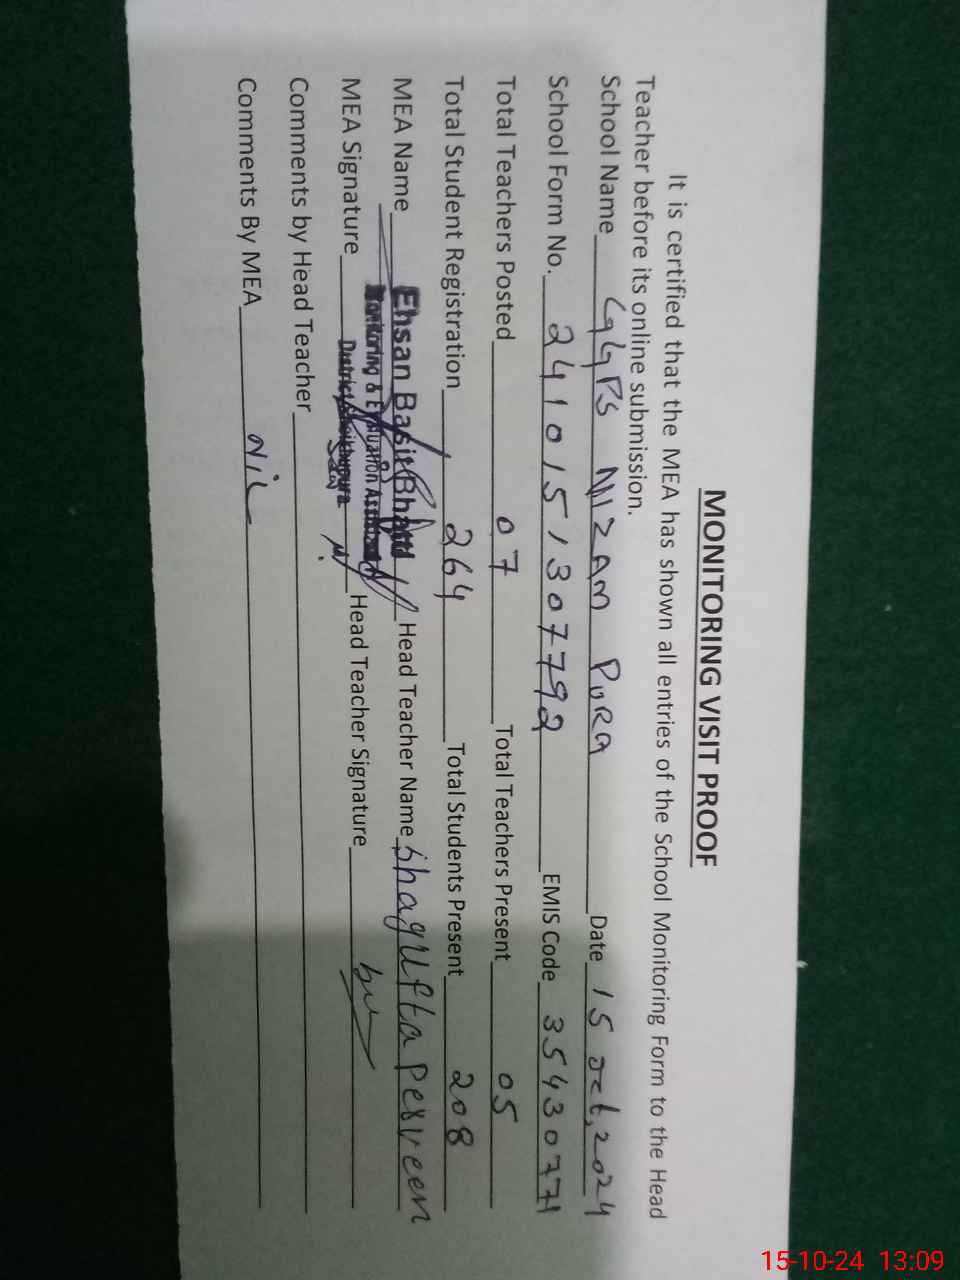 MONITORING VISIT PROOF
It is certified that the MEA has shown all entries of the School Monitoring Form to the Head
Teacher before its online submission.
School Name GGPS NIZAM PURA Date 15 oct, 2024
School Form No. 2410151307792 EMIS Code 35430771
Total Teachers Posted 07 Total Teachers Present 05
Total Student Registration 264 Total Students Present 208
MEA Name Ehsan Basit Bhatti Head Teacher Name Shagufta Perveen
Monitoring & Evaluation Assistant
MEA Signature District Sheikhupura Head Teacher Signature
Comments by Head Teacher
Comments By MEA Nil
15-10-24 13:09